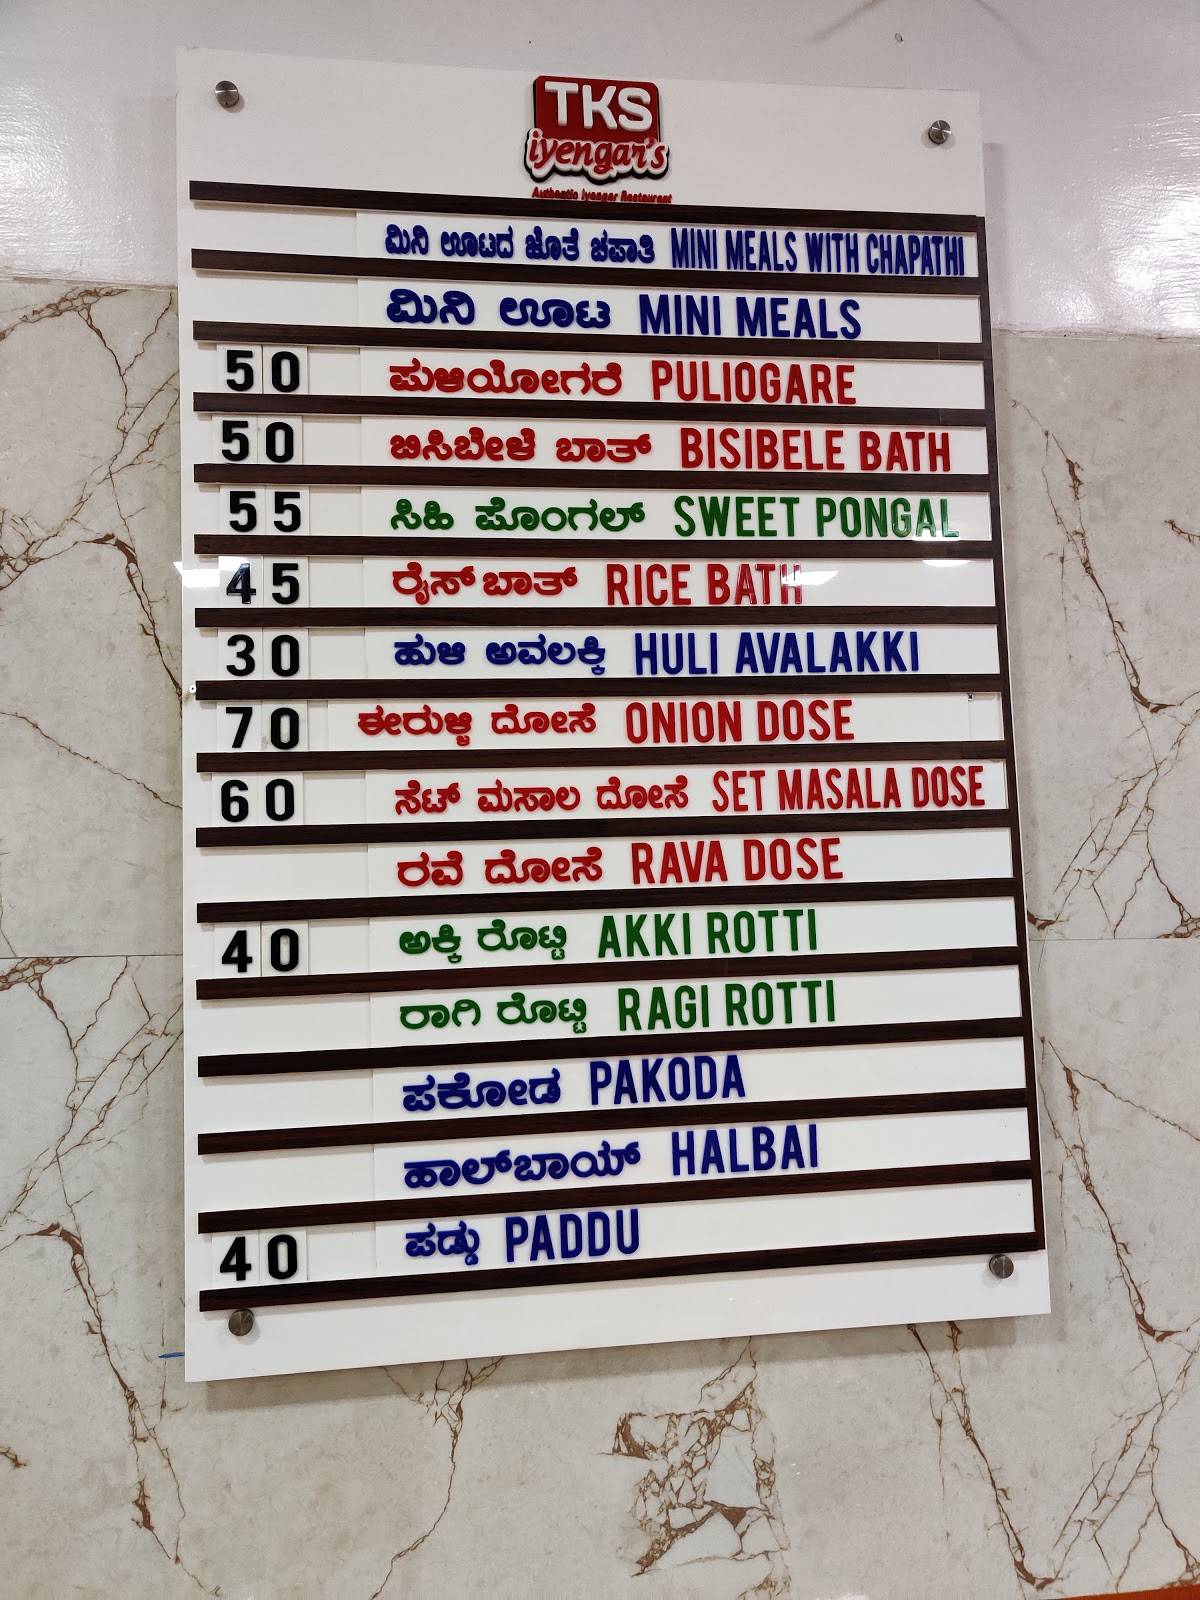 TKS
iyengar's
Authentic Iyengar Restaurant
ಮಿನಿ ಊಟದ ಜೊತೆ ಚಪಾತಿ MINI MEALS WITH CHAPATHI
ಮಿನಿ ಊಟ MINI MEALS
50 ಪುಳಿಯೋಗರೆ PULIOGARE
50 ಬಿಸಿಬೇಳೆ ಬಾತ್ BISIBELE BATH
55 ಸಿಹಿ ಪೊಂಗಲ್ SWEET PONGAL
45 ರೈಸ್ ಬಾತ್ RICE BATH
30 ಹುಳಿ ಅವಲಕ್ಕಿ HULI AVALAKKI
70 ಈರುಳ್ಳಿ ದೋಸೆ ONION DOSE
60 ಸೆಟ್ ಮಸಾಲ ದೋಸೆ SET MASALA DOSE
ರವೆ ದೋಸೆ RAVA DOSE
40 ಅಕ್ಕಿ ರೊಟ್ಟಿ AKKI ROTTI
ರಾಗಿ ರೊಟ್ಟಿ RAGI ROTTI
ಪಕೋಡ PAKODA
ಹಾಲ್‌ಬಾಯ್ HALBAI
40 ಪಡ್ಡು PADDU